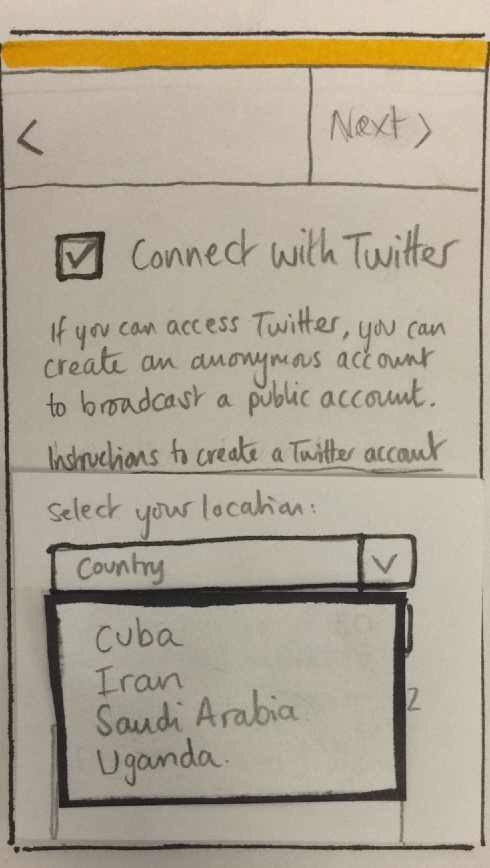 <
Next >
Connect with Twitter
If you can access Twitter, you can
create an anonymous account
to broadcast a public account.
Instructions to create a Twitter account
Select your location:
Country
Cuba
Iran
Saudi Arabia
Uganda.
2